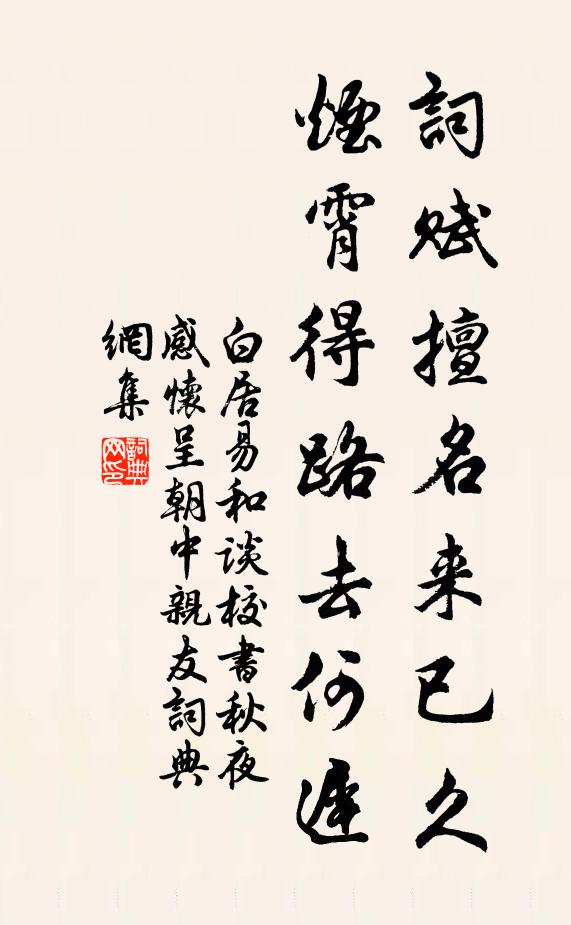 詞賦擅名来已久
煙霄得路去何遲
白居易和談校書秋夜
感懷呈朝中親友詞典
網集
詞典
网印